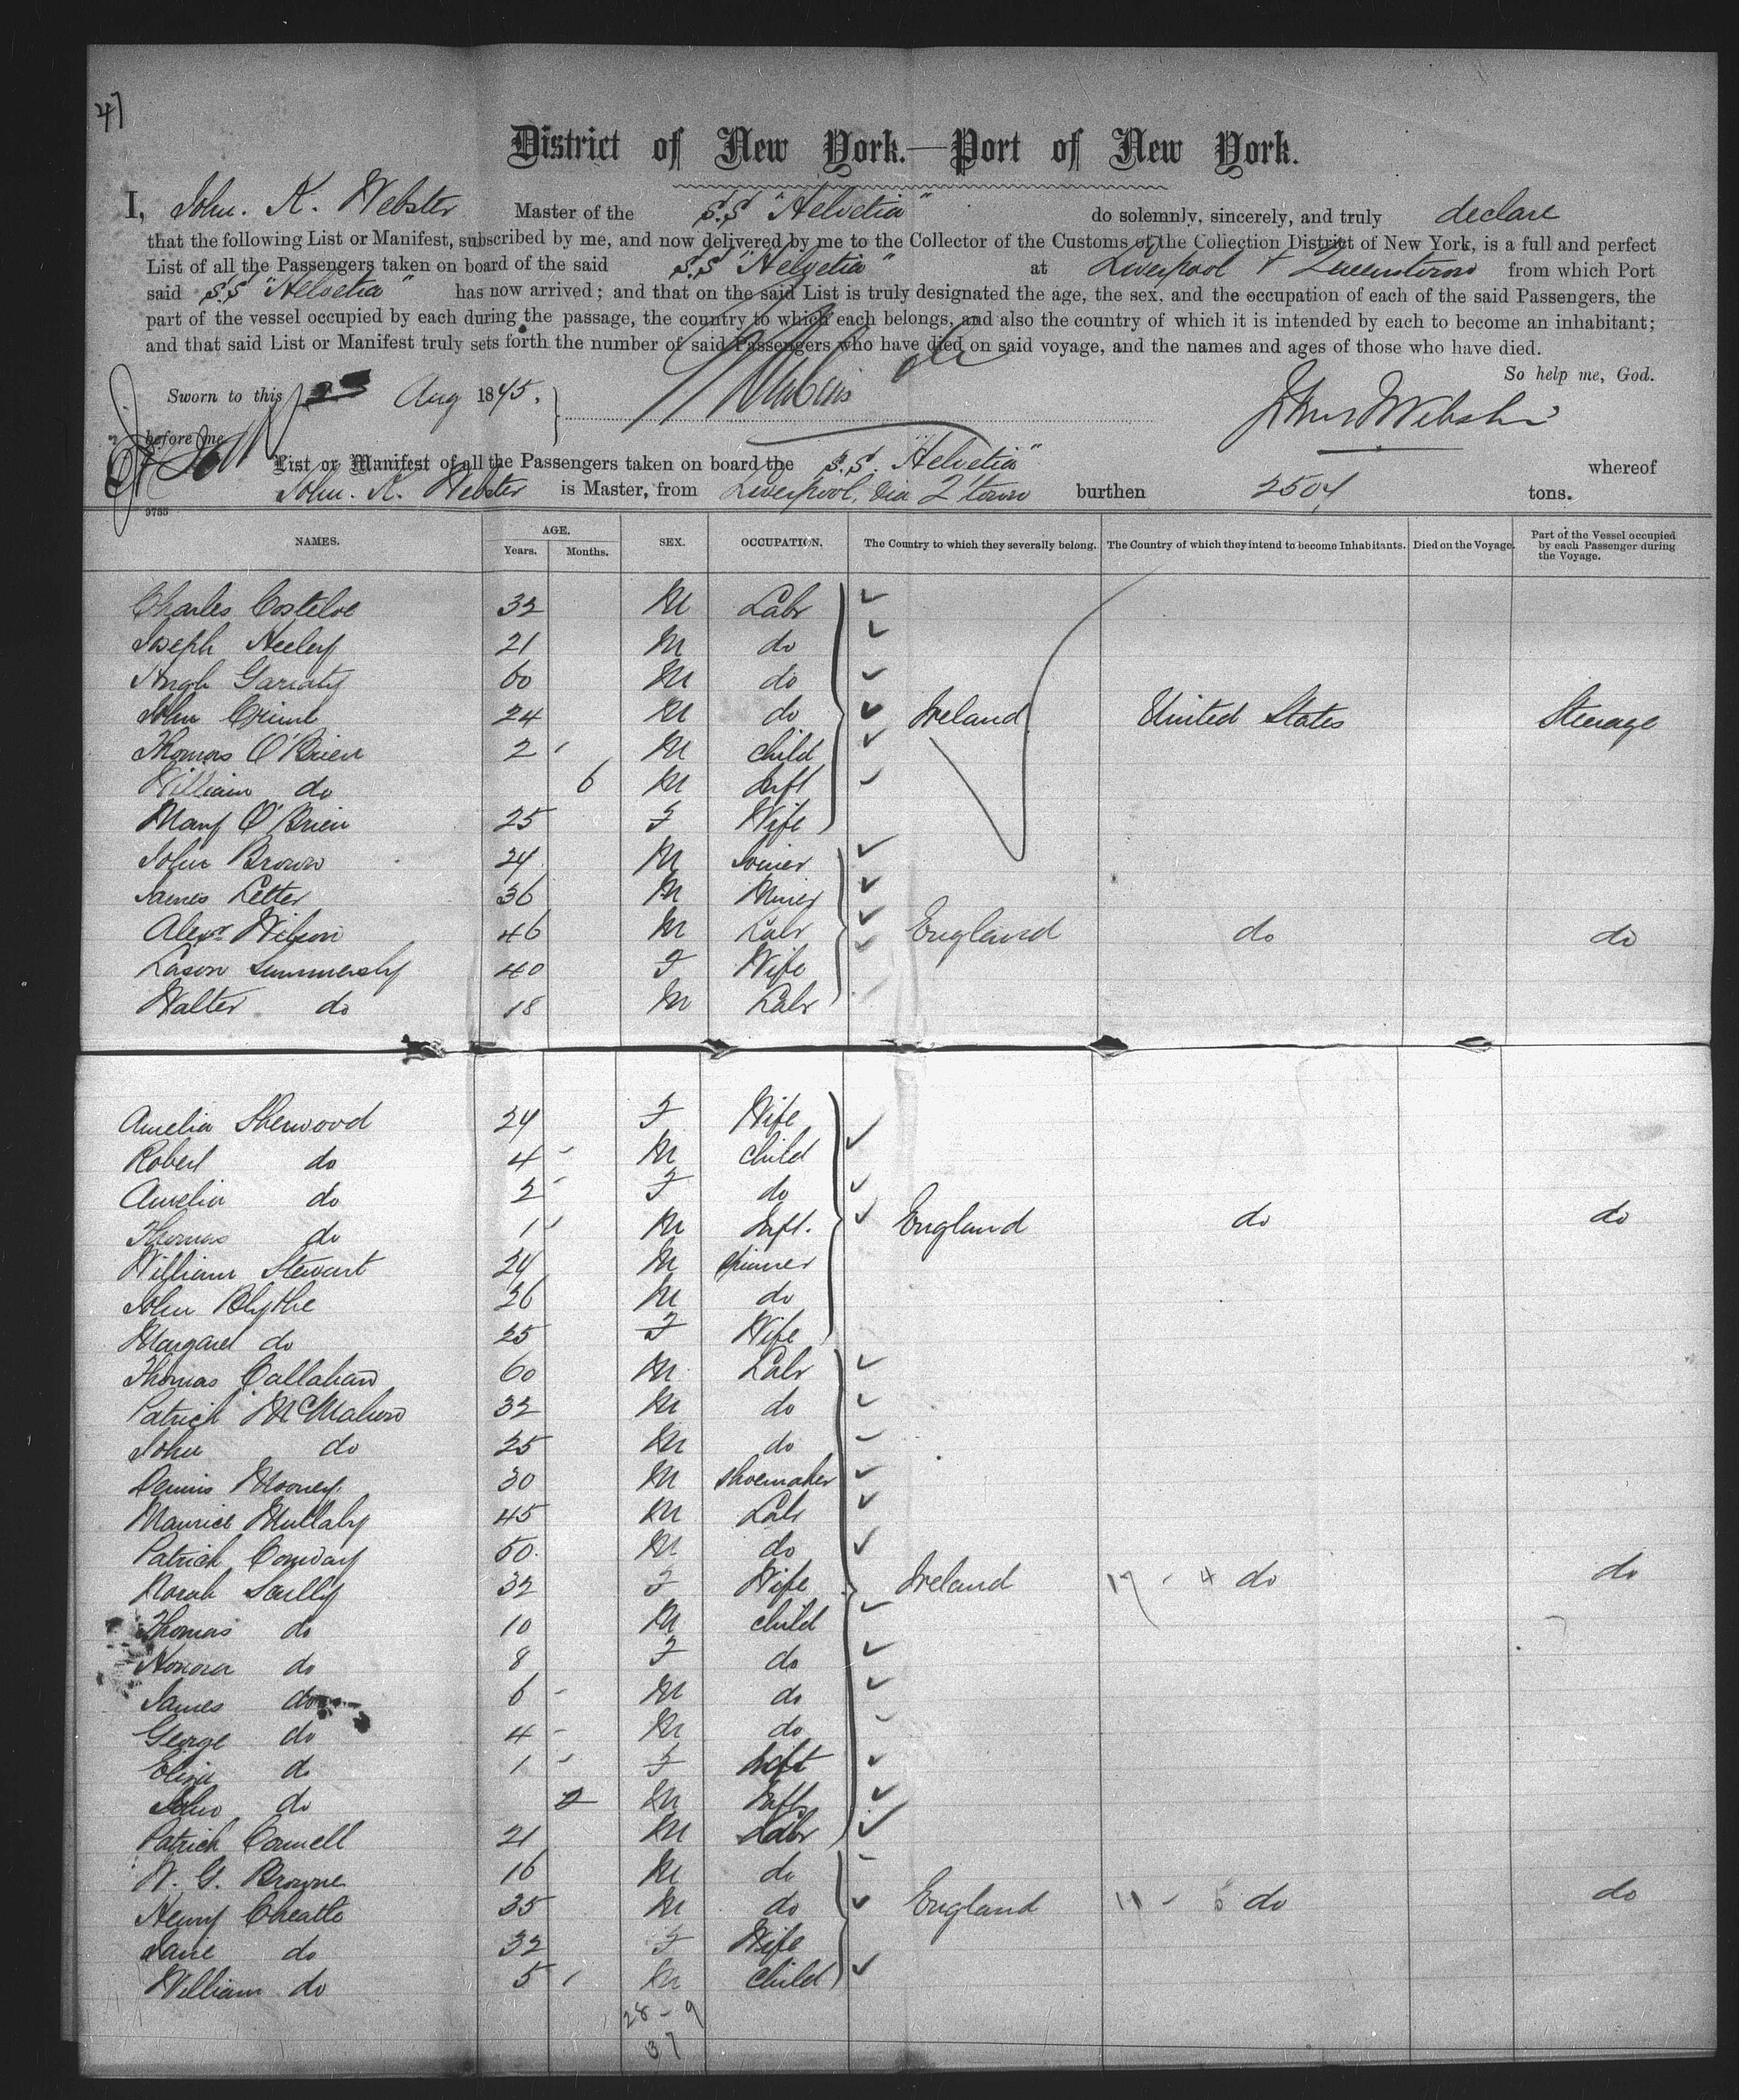 47
District of New York.—Port of New York.
I, John. K. Webster Master of the S.S "Helvetia" do solemnly, sincerely, and truly declare
that the following List or Manifest, subscribed by me, and now delivered by me to the Collector of the Customs of the Collection District of New York, is a full and perfect
List of all the Passengers taken on board of the said S.S "Helvetia" at Liverpool & Queenstown from which Port
said S.S "Helvetia" has now arrived; and that on the said List is truly designated the age, the sex, and the occupation of each of the said Passengers, the
part of the vessel occupied by each during the passage, the country to which each belongs, and also the country of which it is intended by each to become an inhabitant;
and that said List or Manifest truly sets forth the number of said Passengers who have died on said voyage, and the names and ages of those who have died.
So help me, God.
Sworn to this Aug 1875.
before me
List or Manifest of all the Passengers taken on board the S.S. "Helvetia" whereof
John. K. Webster is Master, from Liverpool, via Q'town burthen 2504 tons.
9735
NAMES. AGE. Years. Months. SEX. OCCUPATION. The Country to which they severally belong. The Country of which they intend to become Inhabitants. Died on the Voyage. Part of the Vessel occupied by each Passenger during the Voyage.
Charles Costeloe 32 M Labr
Joseph Neeley 21 M do
Hugh Gariaty 60 M do
John 24 M do Ireland United States Steerage
Thomas O'Brien 2 M child
William do 6 M Inft
Mary O'Brien 25 F Wife
John Brown 24 M Joiner
James Letter 36 M Miner
Alexr Wilson 46 M Labr England do do
Summersby 40 F Wife
Walter do 18 M Labr
Amelia Sherwood 24 F Wife
Robert do 4 M child
Amelia do 2 F do
Thomas do 1 M Inft. England do do
William Stewart 24 M Spinner
John Blythe 26 M do
Margaret do 25 F Wife
Thomas Callahan 60 M Labr
Patrick McMahon 32 M do
John do 25 M do
Dennis Mooney 30 M Shoemaker
Maurice Mullaly 45 M Labr
Patrick Conway 50 M do
Norah Scully 32 F Wife Ireland 17 - 4 do do
Thomas do 10 M child
Honora do 8 F do
James do 6 M do
George do 4 M do
Eliza do 1 F Inft
John do 2 M Inft
Patrick Connell 21 M Labr
W. G. Browne 16 M do
Henry Cheatle 35 M do England 11 - 5 do do
Jane do 32 F Wife
William do 5 M child
28 - 9
37